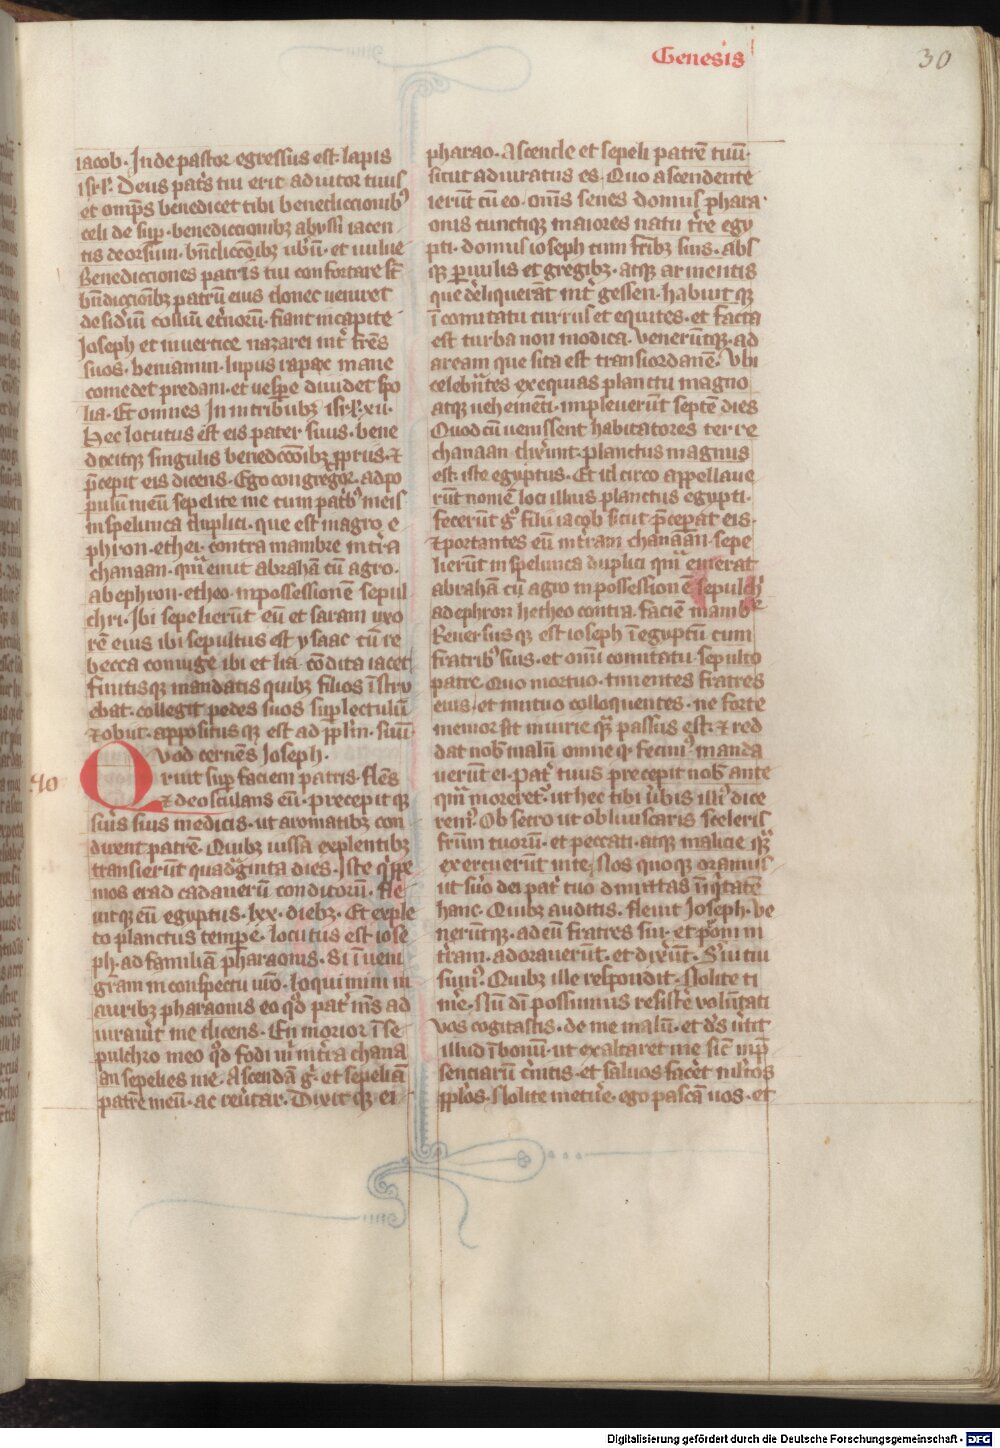 Genesis
30
iacob. Inde pastor egressus est lapis
isrl. Deus patˢ tui erit adiutor tuus
et omp̄s benedicet tibi benediccionibꝰ
celi de suꝑ. benediccionibꝫ abyssi iacen
tis deorsum. bn̄dicconibꝫ ubeꝝ. et uulue
Benedicciones patris tui confortate st̄
bn̄diccionibꝫ patrū eius donec veniret
desidiū colliū et̾noꝝ. fiant in capite
Joseph et in vertice nazarei int̾ fr̄es
suos. beniamin. lupus rapax mane
comedet predam. et uesꝑe diuidet spo
lia. Et omnes hii in tribubꝫ isrl. xii.
Hec locutus est eis pater suus. bene
dixitqꝫ singulis benedcconibꝫ ꝓprijs. ⁊
p̄cepit eis dicens. Ego congregor ad po
pulū meū sepelite me cum patbꝰ meis
in spelunca duplici. que est in agro e
phron. ethei. contra mambre in tr̄a
chanaan. quā emit abrahā cū agro.
ab ephron. etheo. in possessionē sepul
chri. Ibi sepelierūt eū et saram uxo
rē eius ibi sepultus est ysaac cū re
becca coniuge ibi et lia cōdita iacet
finitisqꝫ mandatis quibꝫ filios īstru
ebat. collegit pedes suos suꝑ lectulū
⁊ obiit. appositusqꝫ est ad pplm̄. suū
Quod cernēs Joseph.
50
ruit suꝑ faciem patris. flēs
⁊ deosculans eū. precepitqꝫ
suis suis medicis. ut aromatibꝫ con
dirent patrē. Quibꝫ iussa explentibꝫ
transierūt quadginta dies. Iste qippe
mos erad cadauerū conditorū. Fle
uitqꝫ eū egyptus. lxx. diebꝫ. Et exple
to planctus tempe. locutus est iose
ph. ad familiā pharaonis. Si ī ueni
gram in conspectu uro. loquimini in
auribꝫ pharaonis eo qd pat̾ ms̄ ad
iurauit me dicens. En morior ī se
pulchro meo qd fodi m̄ in tr̄a chana
an sepelies me. Ascendā g̾. et sepeliā
patrē meū. ac reutar. Dixitqꝫ ei
pharao. Ascende et sepeli patrē tuū.
sicut adiuratus es. Quo ascendente
ierūt cū eo. om̄s senes domus phara
onis cunctique maiores natu tr̄re egy
pti. domus ioseph cum fribꝫ suis. abs
qꝫ paruulis et gregibꝫ. atqꝫ armentis
que deliquerāt int̾ gessen. habuitqꝫ
ī comitatu currus et equites. et facta
est turba non modica. venerūtqꝫ. ad
aream que sita est trans iordanē. Vbi
celebrātes exequias planctu magno
atqꝫ uehementi. impleuerūt septē dies
Quod cū uenissent habitatores terre
chanaan dixer̄unt. planctus magnus
est. iste egyptus. Et id circo appellaue
rūt nomē loci illius planctus egypti.
fecerūt g̾ filii iacob sicut p̄cepat eis.
⁊ portantes eū in tr̄am chanaan. sepe
lierūt in spelunca duplici quā emerat
abrahā cū agro in possessionē sepulchi
ad ephron hetheo contra. faciē mamb̾e
Reuersusqꝫ est ioseph ī egyptū cum
fratribꝰ suis. et om̄i comitatu. sepulto
patre. Quo mortuo. timentes fratres
eius. et mutuo colloquentes. ne forte
memor sit iniurie quā passus est. ⁊ red
dat nob̄ malū omne qd fecimꝰ. manda
uerūt ei. Pat̾ tuus precepit nob̄ ante
quā moreret̾. ut hec tibi ūbis illiꝰ dice
remꝰ. Obsecro ut obliuiscaris sceleris
frm̄ tuorū. et peccati. atqꝫ malicie quā
exercuerūt in te. Nos quoqꝫ oramus
ut suo dei pat̾ tuo dimittas iniqitatē
hanc. Quibꝫ auditis. fleuit Joseph. Ve
nerūtqꝫ. ad eū fratres sui. et proni in
tr̄am. adorauerūt. et dixer̄ūt. Sui tui
sumꝰ. Quibꝫ ille respondit. Nolite ti
mēre. Nū dī possumus resistēre volūtati
vos cogitastis. de me malū. et ds̄ ūtit
illud ī bonū. ut exaltaret me sic̄ inp̄
senciarū c̾nitis. et saluos facēt multos
pplos. Nolite metuēre. ego pascā uos. et
Digitalisierung gefördert durch die Deutsche Forschungsgemeinschaft - DFG